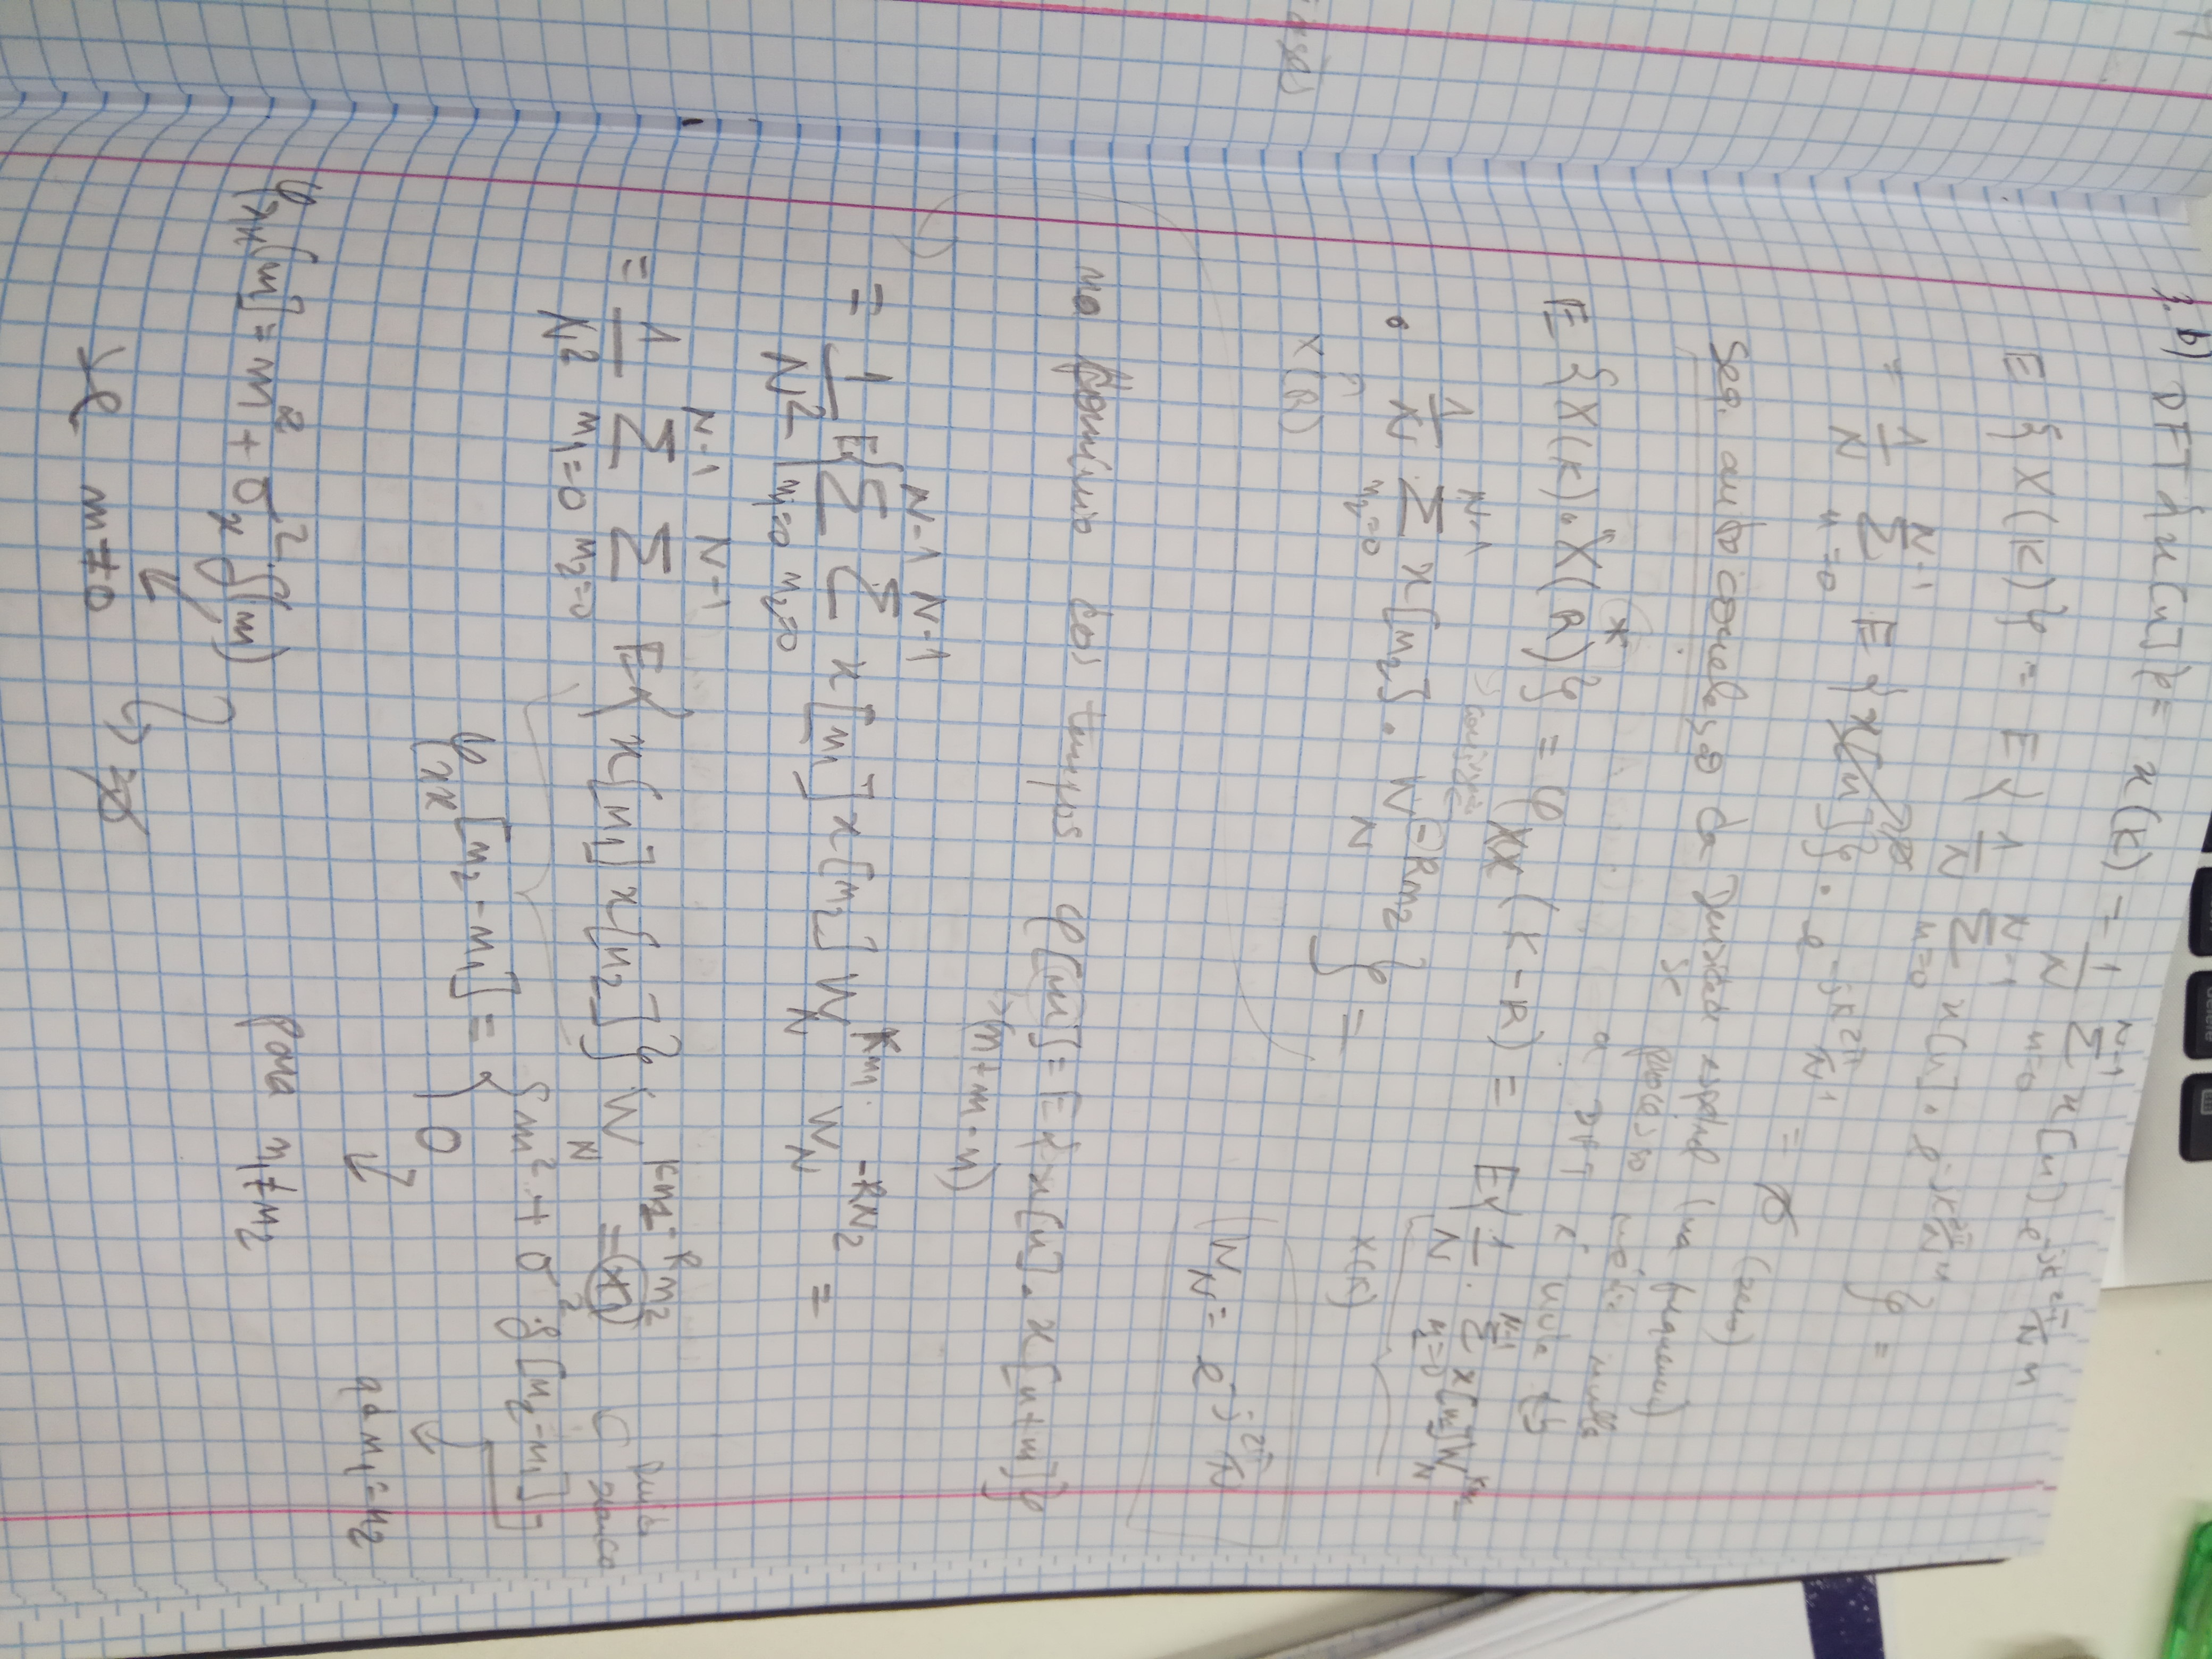 3. b) DFT {x[n]} = x(K) = 1/N Σ_{n=0}^{N-1} x[n] e^{-jk 2π/N n}
E {X(K)} = E { 1/N Σ_{n=0}^{N-1} x[n] · e^{-jK 2π/N n} } =
= 1/N Σ_{n=0}^{N-1} E {x[n]} → ∅ · e^{-jk 2π/N 1} = ∅ (zero)
Seq. autocorrelação da Densidade espetral (na frequencia)
se processo média nulla
a DFT é nula
E {X(K) · X*(R)} = φ_XX (K-R) = E{ 1/N · Σ_{n=0}^{N-1} x[n] W_N
conjugado
· 1/N Σ_{n_2=0}^{N-1} x[n_2] · W_N^{-R n_2} } =
X(K)
X(R)
W_N = e^{-j 2π/N}
no domínio dos tempos φ[m] = E{x[n] · x[n+m]}
→ (n+m-n)
= 1/N^2 E{ Σ_{n_1=0}^{N-1} Σ_{n_2=0}^{N-1} x[n_1] x[n_2] W_N^{K n_1} · W_N^{-R N_2} =
= 1/N^2 Σ_{n_1=0}^{N-1} Σ_{n_2=0}^{N-1} E{ x[n_1] x[n_2] } W_N^{K n_1 - R n_2} =
φ_xx [n_2-n_1] = { m^2 + σ^2 · δ[n_2-n_1]
0
qd n_1 = n_2
φ_xx[m] = m^2 + σ_x^2 · δ(m)
para n_1 ≠ n_2
se m ≠ 0 → = ∅